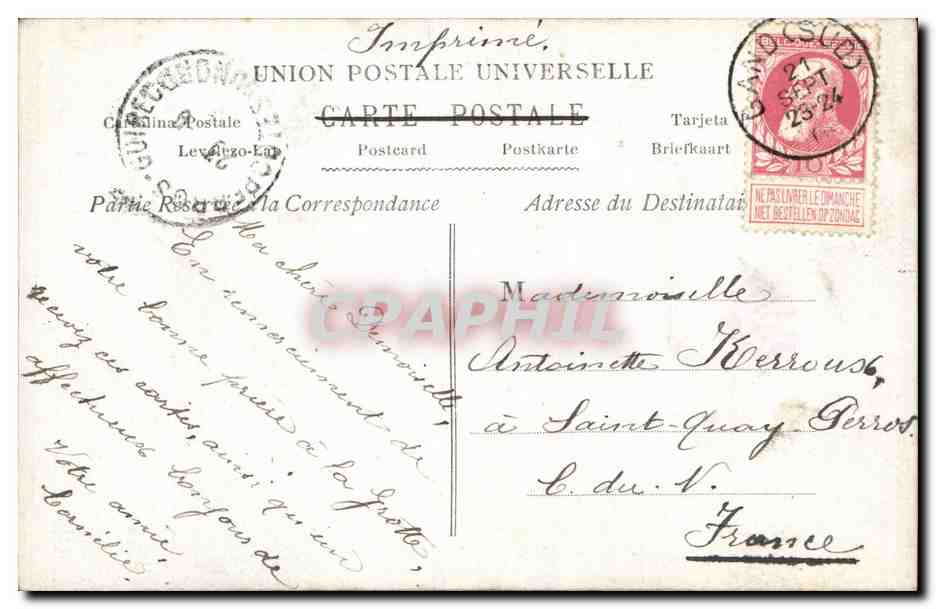 Imprimé.
UNION POSTALE UNIVERSELLE
CARTE POSTALE
Cartolina Postale Tarjeta
Levelezo-Lap Postcard Postkarte Briefkaart
Partie Réservée à la Correspondance Adresse du Destinatai
GAND (SUD)
21
SEPT
23-24
10
NE PAS LIVRER LE DIMANCHE
NIET BESTELLEN OP ZONDAG
Ma chère Demoiselle,
En remerciement de
votre bonne prière à la Grotte,
recevez ces cartes, ainsi qu'un
affectueux bonjour de
Votre amie
Cornélie.
Mademoiselle
Antoinette Kerroux,
à Saint-Quay Perros.
C. du N.
France
CPAPHIL